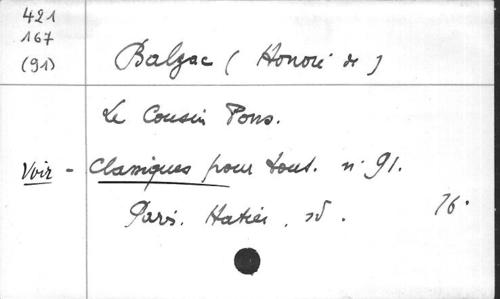 421
167
(91)
Balzac (Honoré de)
Le Cousin Pons.
Voir - Classiques pour tous. n° 91.
Paris. Hatier. sd.
16°